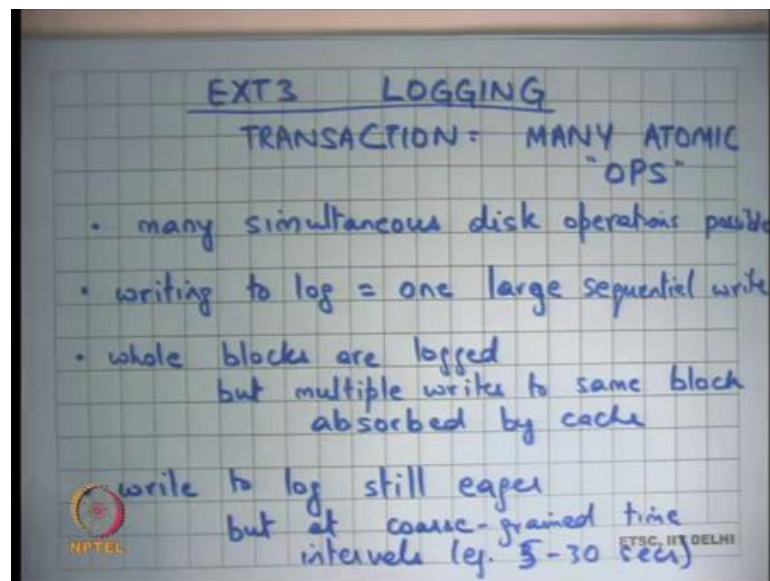 EXT3 LOGGING
TRANSACTION = MANY ATOMIC
"OPS"
• many simultaneous disk operations possible
• writing to log = one large sequential write
• whole blocks are logged
but multiple writes to same block
absorbed by cache
write to log still eager
but at coarse-grained time
intervals (eg. 5-30 secs)
NPTEL
ETSC, IIT DELHI